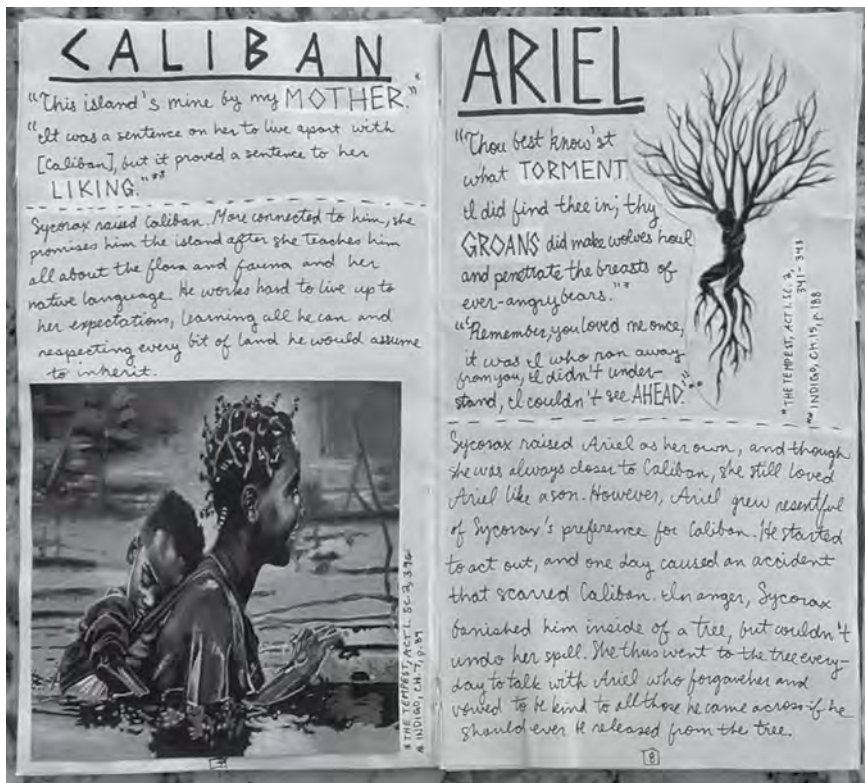 CALIBAN
"This island's mine by my MOTHER."*
"It was a sentence on her to live apart with
[Caliban], but it proved a sentence to her
LIKING."**
Sycorax raised Caliban. More connected to him, she
promises him the island after she teaches him
all about the flora and fauna and her
native language. He works hard to live up to
her expectations, learning all he can and
respecting every bit of land he would assume
to inherit.
* THE TEMPEST, ACT I. SC. 2, 396
INDIGO, CH. 7, p. 89
ARIEL
"Thou best know'st
what TORMENT
I did find thee in; thy
GROANS did make wolves howl
and penetrate the breasts of
ever-angry bears."*
"Remember, you loved me once,
it was I who ran away
from you, I didn't under-
stand, I couldn't see AHEAD."**
* THE TEMPEST, ACT I. SC. 2,
341-343
** INDIGO, CH. 15, p. 188
Sycorax raised Ariel as her own, and though
she was always closer to Caliban, she still loved
Ariel like a son. However, Ariel grew resentful
of Sycorax's preference for Caliban. He started
to act out, and one day caused an accident
that scarred Caliban. In anger, Sycorax
banished him inside of a tree, but couldn't
undo her spell. She thus went to the tree every-
day to talk with Ariel who forgave her and
vowed to be kind to all those he came across if he
should ever be released from the tree.
8